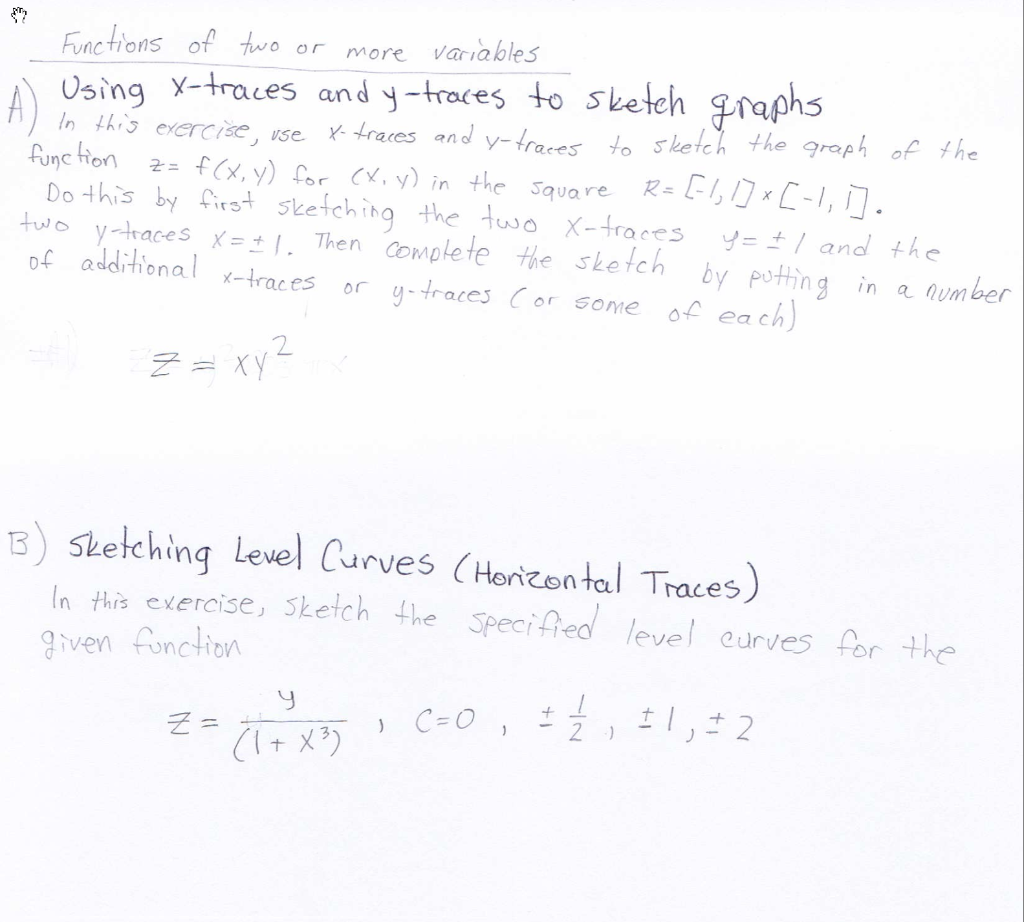 Functions of two or more variables
A) Using x-traces and y-traces to sketch graphs
In this exercise, use x-traces and y-traces to sketch the graph of the
function z = f(x, y) for (x, y) in the square R = [-1, 1] × [-1, 1].
Do this by first sketching the two x-traces y = ± 1 and the
two y-traces x = ± 1. Then complete the sketch by putting in a number
of additional x-traces or y-traces (or some of each)
z = xy²
B) Sketching Level Curves (Horizontal Traces)
In this exercise, sketch the specified level curves for the
given function
z = y/(1 + x³) , C=0 , ± 1/2 , ± 1 , ± 2